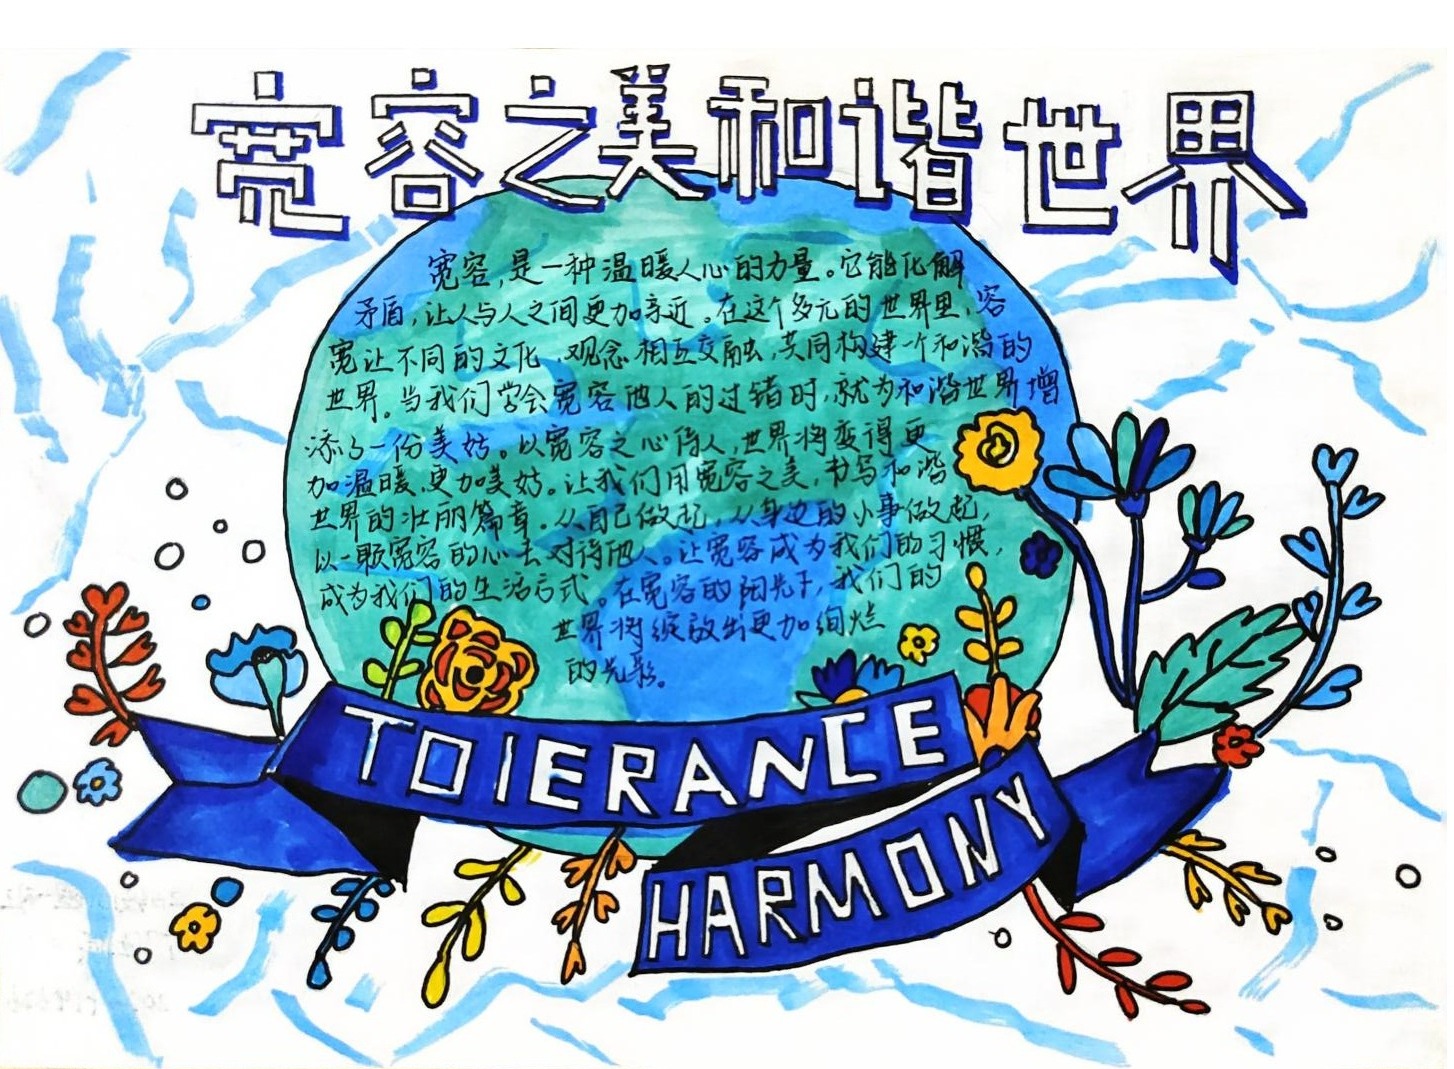 宽容之美和谐世界
宽容，是一种温暖人心的力量。它能化解
矛盾，让人与人之间更加亲近。在这个多元的世界里，容
宽让不同的文化、观念相互交融，共同构建一个和谐的
世界。当我们学会宽容他人的过错时，就为和谐世界增
添了一份美好。以宽容之心待人，世界将变得更
加温暖、更加美好。让我们用宽容之美，书写和谐
世界的壮丽篇章。从自己做起，从身边的小事做起，
以一颗宽容的心去对待他人。让宽容成为我们的习惯，
成为我们的生活方式。在宽容的阳光下，我们的
世界将绽放出更加绚烂
的光彩。
TOlERANCE
HARMONY